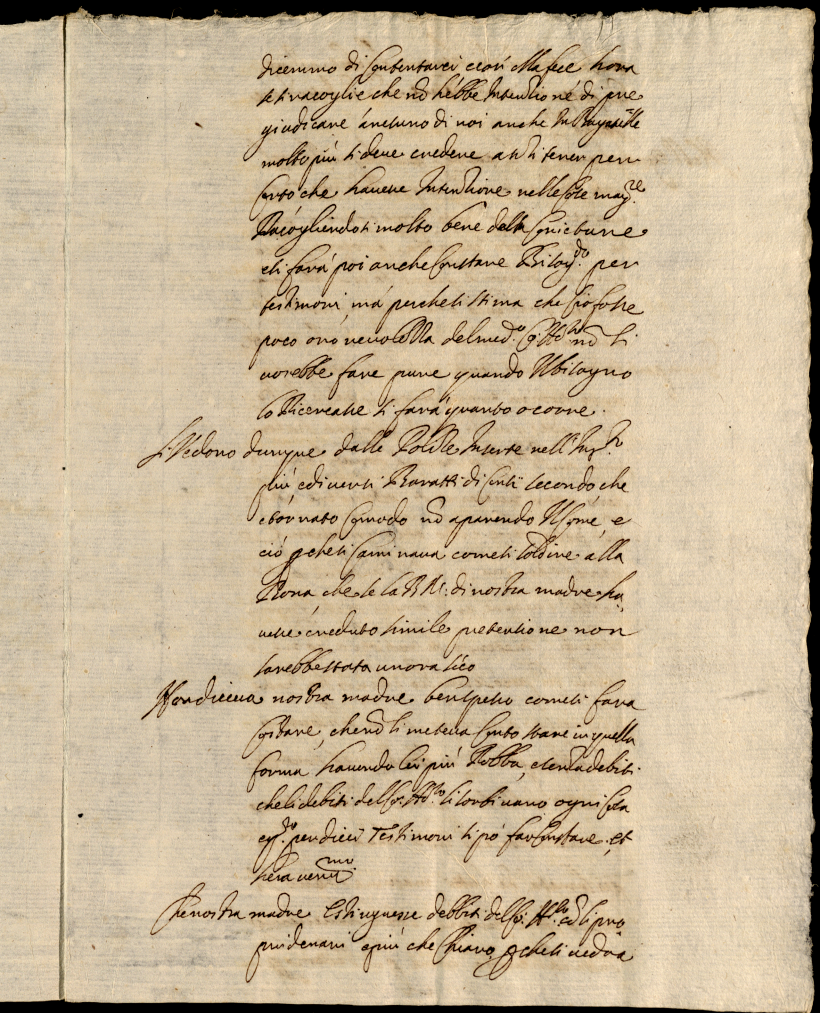 diremmo di Contentarci e cosi Ma se hora
si racoglie che nō hebbe Intentione di pre
giudicare à nesuno di noi anche In
molto più si deve credere a si tener per
Certo che havese Intentione nelle Cose mag.re
Racogliendosi molto bene dalle Scritture
e si farà poi anche Constare per
testimoni, mà perche si stima che ciò fosse
poco del med.o nō si
vorebbe fare pure quando Il bisogno
lo Ricercase si farà quanto ocorre.
Si Vedono dunque dalle Polile Inserte nell'
più e diversi Baratti di Conti secondo che
è tornato Comodo nō aparendo e
ciò ꝑche si Caminava come si Costume alla
Bona che se la B. M: di nostra madre ha,
vese creduto simile pretensione non
sarebbe stata un'ora seco
Hor diceva nostra madre ben spesso come si farà
Costare, che nō si meteva Conto stare in quella
forma havendo lei più Robba, e senza debiti
che li debiti del si sorbivano ogni Cosa
e per dieci Testimoni si pò far Constare et
hera veriss.mo
Se nostra madre Estinguesse debbiti del cō li pro
pri denari è più che Chiaro ꝑche si vedrà